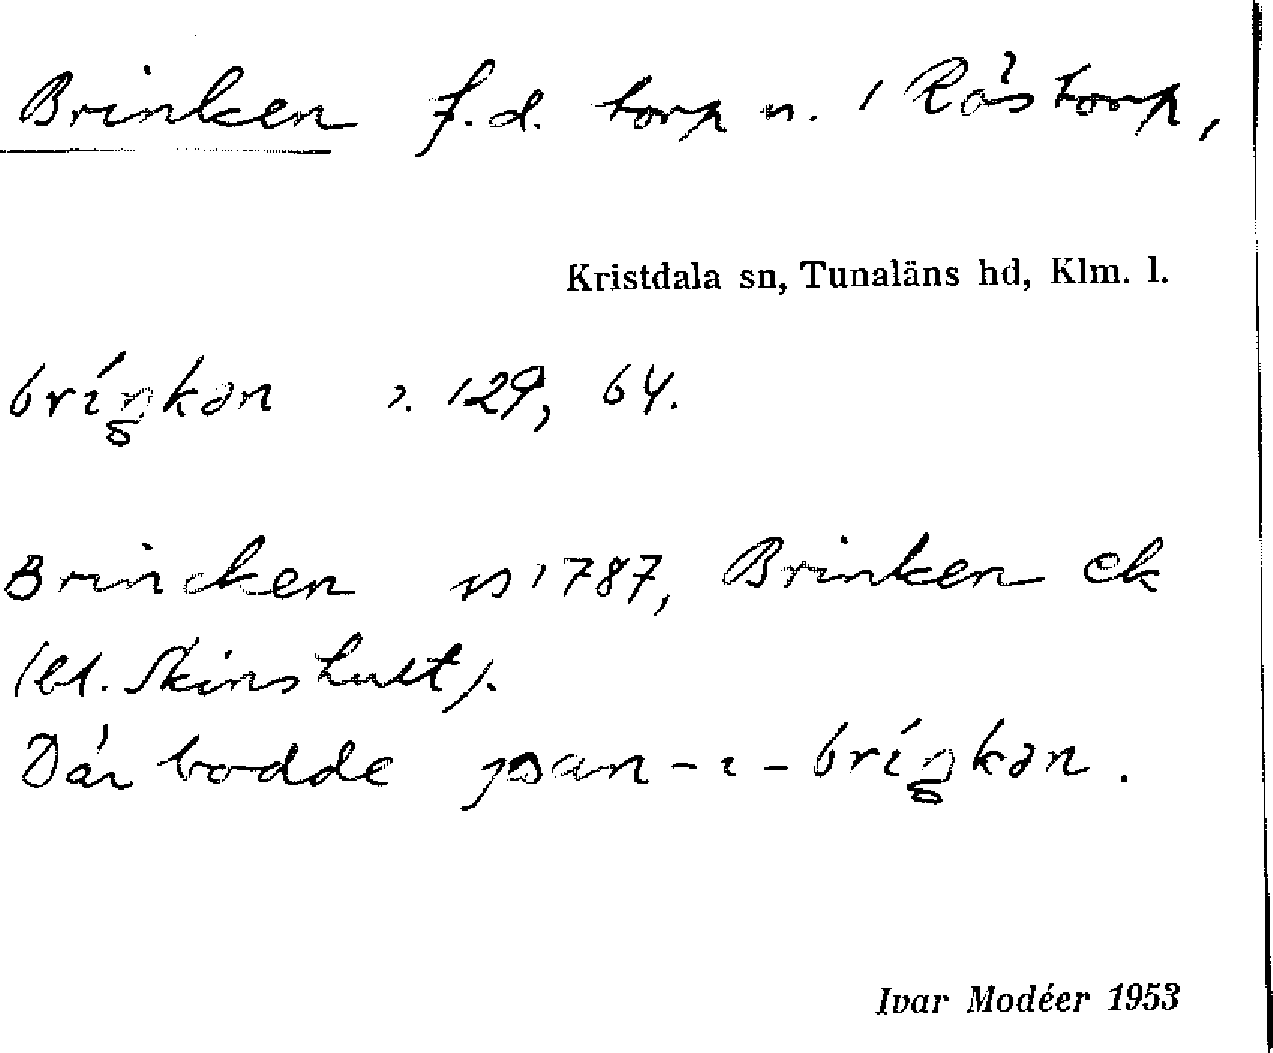 Brinken f.d. torp n. i Råstorp,
Kristdala sn, Tunaläns hd, Klm. l.
bríŋkən 2. 129, 64.
Brincken 1787, Brinken ek
(bl. Skinshult).
Där bodde -ı- bríŋkən.
Ivar Modéer 1953